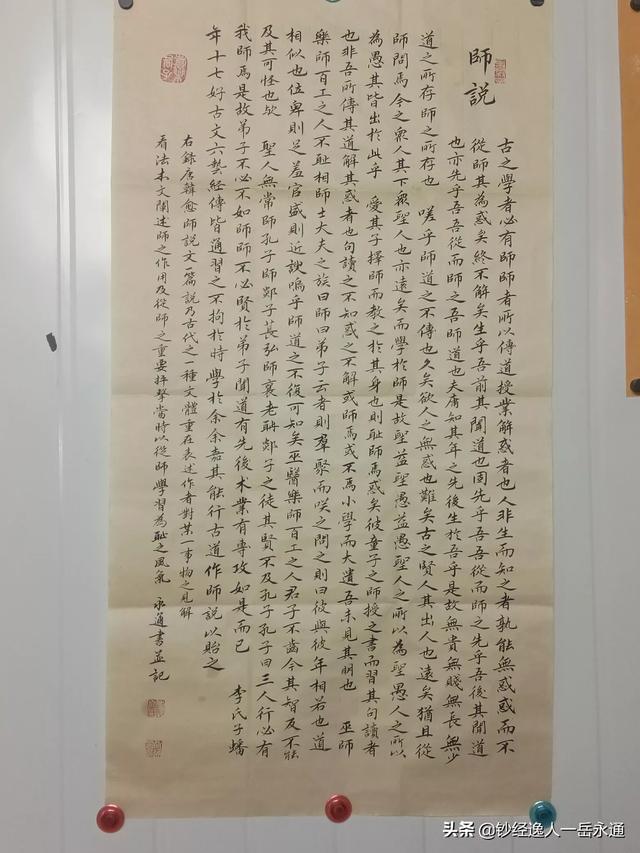 師説
古之學者必有師師者所以傳道授業解惑者也人非生而知之者孰能無惑惑而不
從師其為惑矣終不解矣生乎吾前其聞道也固先乎吾吾從而師之先乎吾後其聞道
也亦先乎吾吾從而師之吾師道也夫庸知其年之先後生於吾乎是故無貴無賤無長無少
道之所存師之所存也 嗟乎師道之不傳也久矣欲人之無惑也難矣古之賢人其出人也遠矣猶且從
師問焉今之衆人其下衆聖人也亦遠矣而學於師是故聖益聖愚益愚聖人之所以為聖愚人之所以
為愚其皆出於此乎 愛其子擇師而教之於其身也則恥師焉惑矣彼童子之師授之書而習其句讀者
也非吾所傳其道解其惑者也句讀之不知惑之不解或師焉或不焉小學而大遺吾未見其明也 巫師
樂師百工之人不恥相師士大夫之族曰師曰弟子云者則羣聚而咲之問之則曰彼與彼年相若也道
相似也位卑則足羞官盛則近諛嗚乎師道之不復可知矣巫醫樂師百工之人君子不齒今其智及不能
及其可怪也欤 聖人無常師孔子師郯子萇弘師襄老聃郯子之徒其賢不及孔子孔子曰三人行必有
我師焉是故弟子不必不如師師不必賢於弟子聞道有先後术業有專攻如是而已 李氏子蟠
年十七好古文六藝經傳皆通習之不拘於時學於余余嘉其能行古道作師說以貽之
右錄唐韓愈師説文一篇説乃古代之一種文體重在表述作者對某一事物之見解
看法本文闡述師之作用及從師之重要抨擊當時以從師學習為恥之風氣 永通書並記
头条 @钞经逸人一岳永通